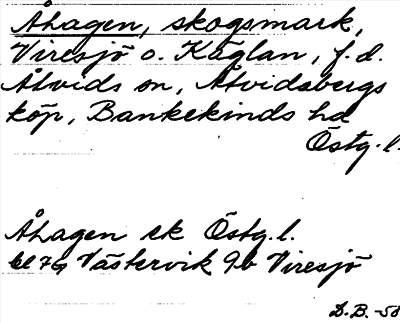 Åhagen, skogsmark,
Viresjö o. Käglan, f.d.
Åtvids sn, Åtvidabergs
köp, Bankekinds hd
Östg.l.
Åhagen ek Östg.l.
bl 79 Västervik 9b Viresjö
D.B. -58